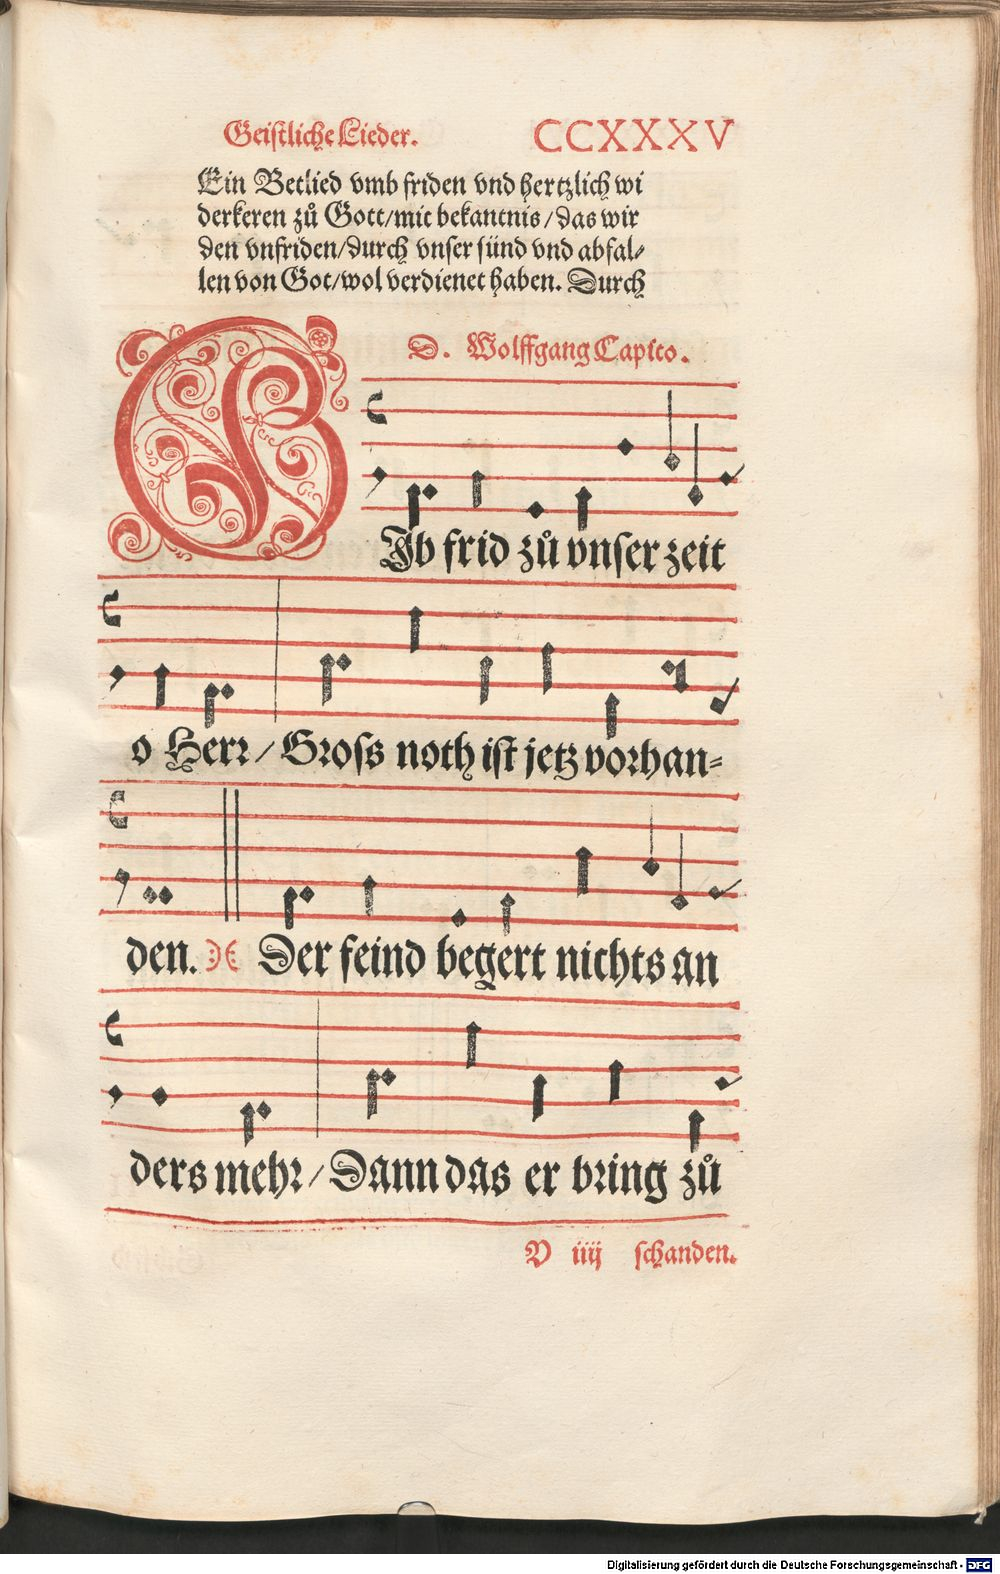 Geistliche Lieder. CCXXXV
Ein Betlied vmb friden vnd hertzlich wi
derkeren zů Gott/mit bekantnis/das wir
den vnfriden/durch vnser sünd vnd abfal⸗
len von Got/wol verdienet haben. Durch
D. Wolffgang Capito.
GIb frid zů vnser zeit
o Herr / Gross noth ist jetz vorhan⸗
den. Der feind begert nichts an
ders mehr / Dann das er bring zů
V iiij schanden.
Digitalisierung gefördert durch die Deutsche Forschungsgemeinschaft - DFG